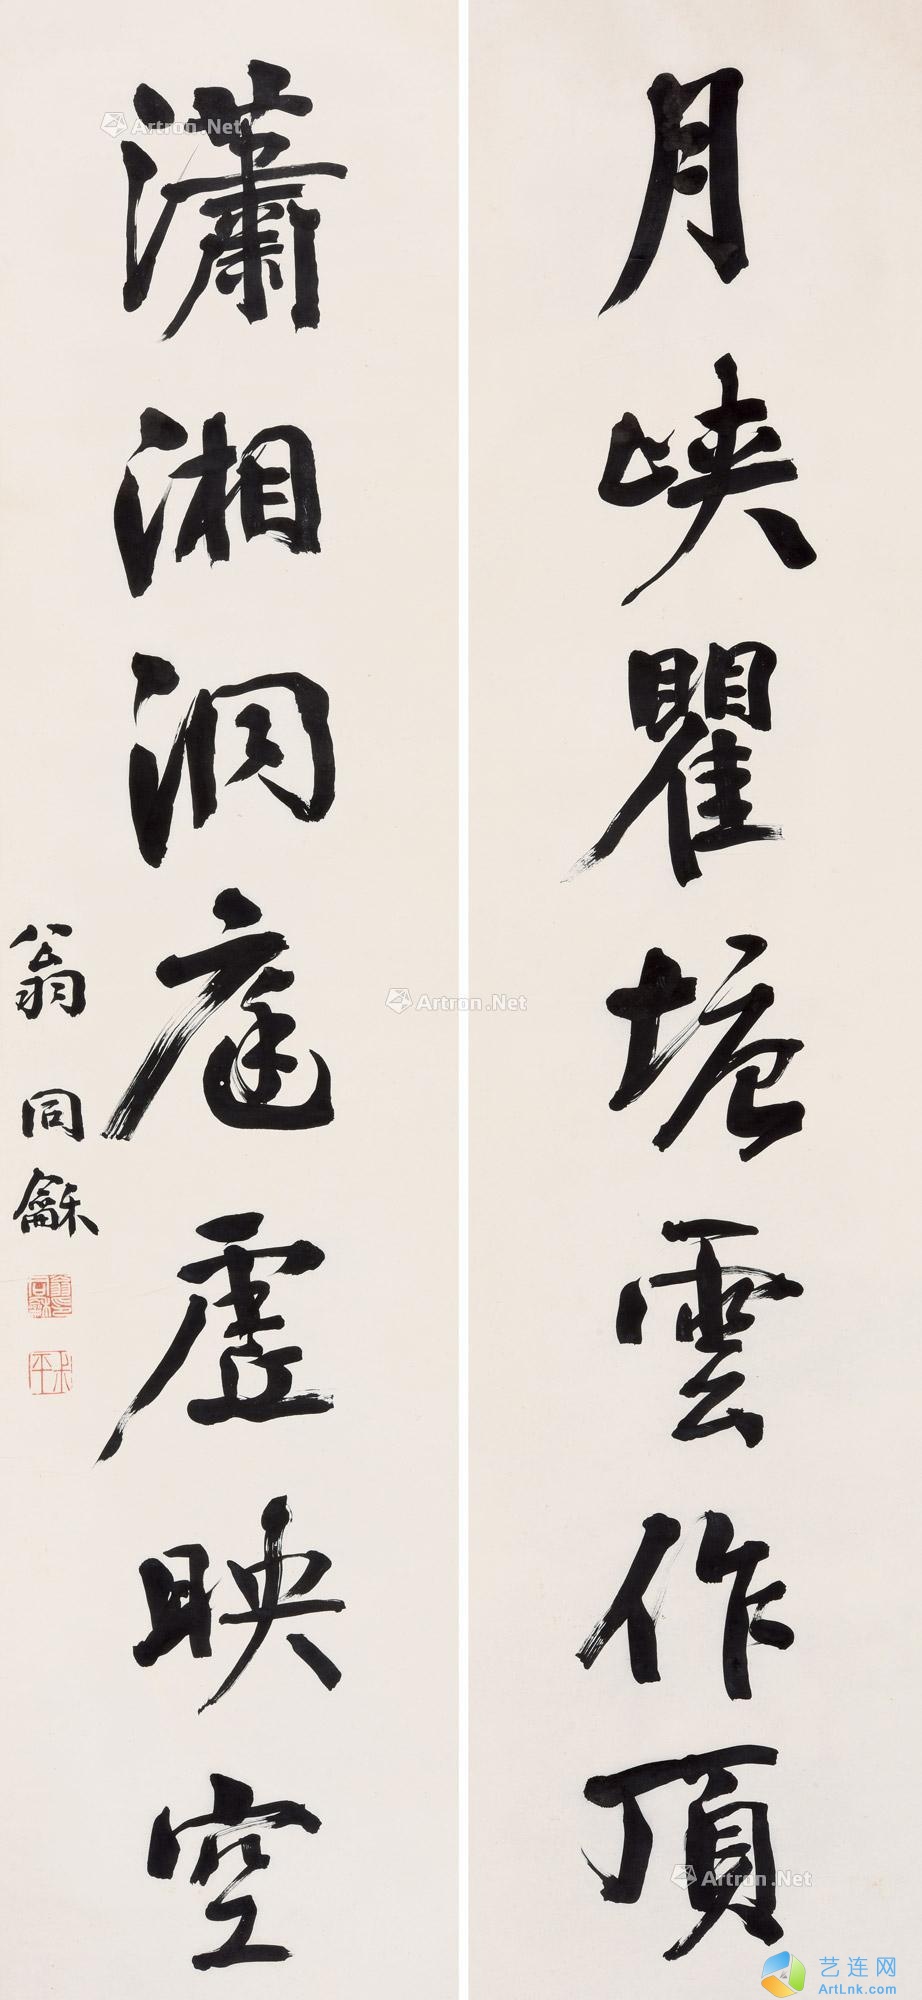 月峡瞿塘雲作頂
瀟湘洞庭虛映空
翁同龢
Artron.Net
Artron.Net
Artron.Net
艺连网
ArtLnk.com